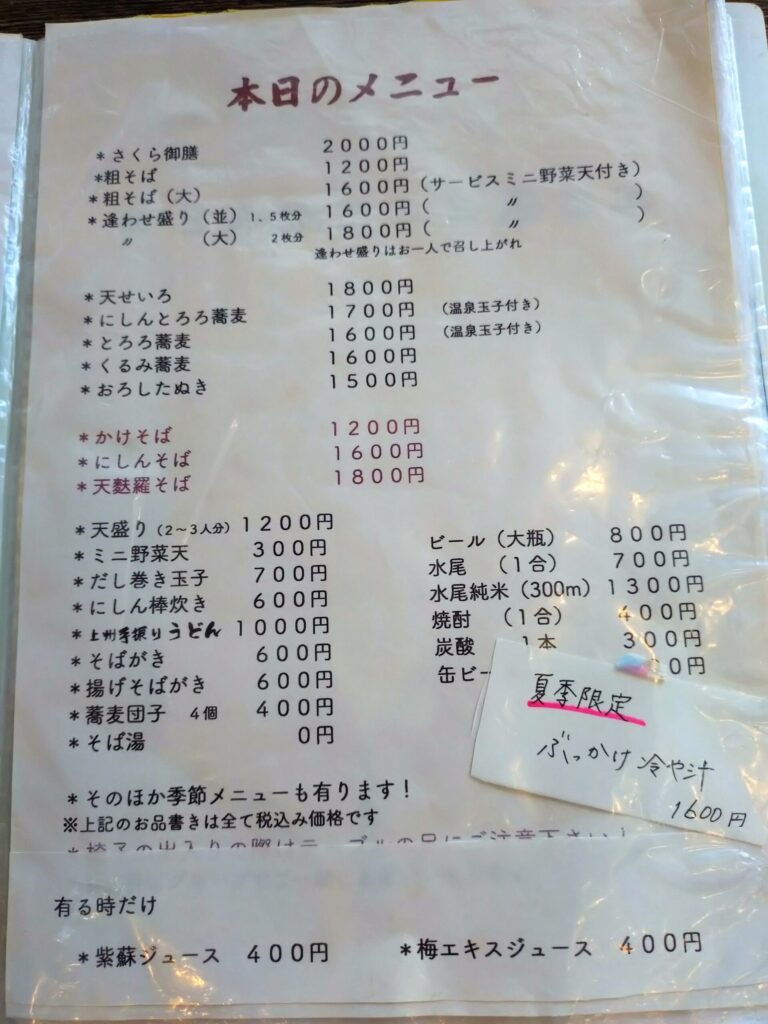 本日のメニュー
＊さくら御膳 2000円
＊粗そば 1200円
＊粗そば（大） 1600円（サービスミニ野菜天付き）
＊逢わせ盛り（並）1、5枚分 1600円（ 〃 ）
〃 （大） 2枚分 1800円（ 〃 ）
逢わせ盛りはお一人で召し上がれ
＊天せいろ 1800円
＊にしんとろろ蕎麦 1700円 （温泉玉子付き）
＊とろろ蕎麦 1600円 （温泉玉子付き）
＊くるみ蕎麦 1600円
＊おろしたぬき 1500円
＊かけそば 1200円
＊にしんそば 1600円
＊天麩羅そば 1800円
＊天盛り（2～3人分）1200円
＊ミニ野菜天 300円
＊だし巻き玉子 700円
＊にしん棒炊き 600円
＊上州手振りうどん 1000円
＊そばがき 600円
＊揚げそばがき 600円
＊蕎麦団子 4個 400円
＊そば湯 0円
ビール（大瓶） 800円
水尾 （1合） 700円
水尾純米（300m）1300円
焼酎 （1合） 400円
炭酸 1本 300円
缶ビー 0円
夏季限定
ぶっかけ冷や汁
1600円
＊そのほか季節メニューも有ります！
※上記のお品書きは全て税込み価格です
有る時だけ
＊紫蘇ジュース 400円 ＊梅エキスジュース 400円